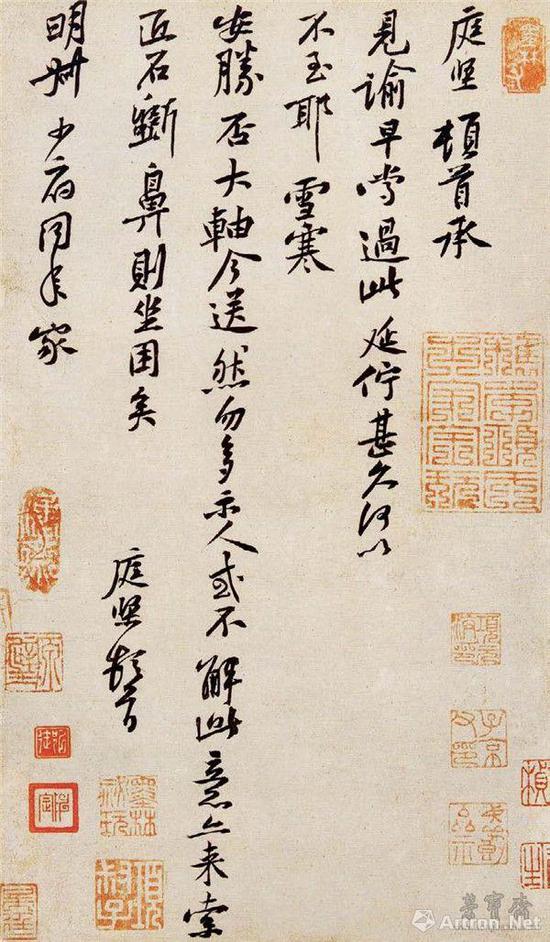 庭堅頓首承
見諭早嘗過此延佇甚久何以
不至耶 雪寒
安勝否大軸今送然勿多示人或不解此意亦来索
匠石斲鼻則坐困矣
庭堅頓首
明叔少府同年家
項元汴印
子京父印
墨林祕玩
Artron.Net